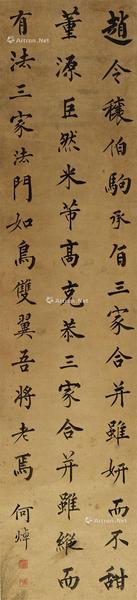 趙令穰伯駒承旨三家合并雖妍而不甜
董源巨然米芾高古恭三家合并雖縱而
有法三家法門如鳥雙翼吾將老焉
何焯
Artron.Net
Artron.Net
Artron.Net
Artron.Net